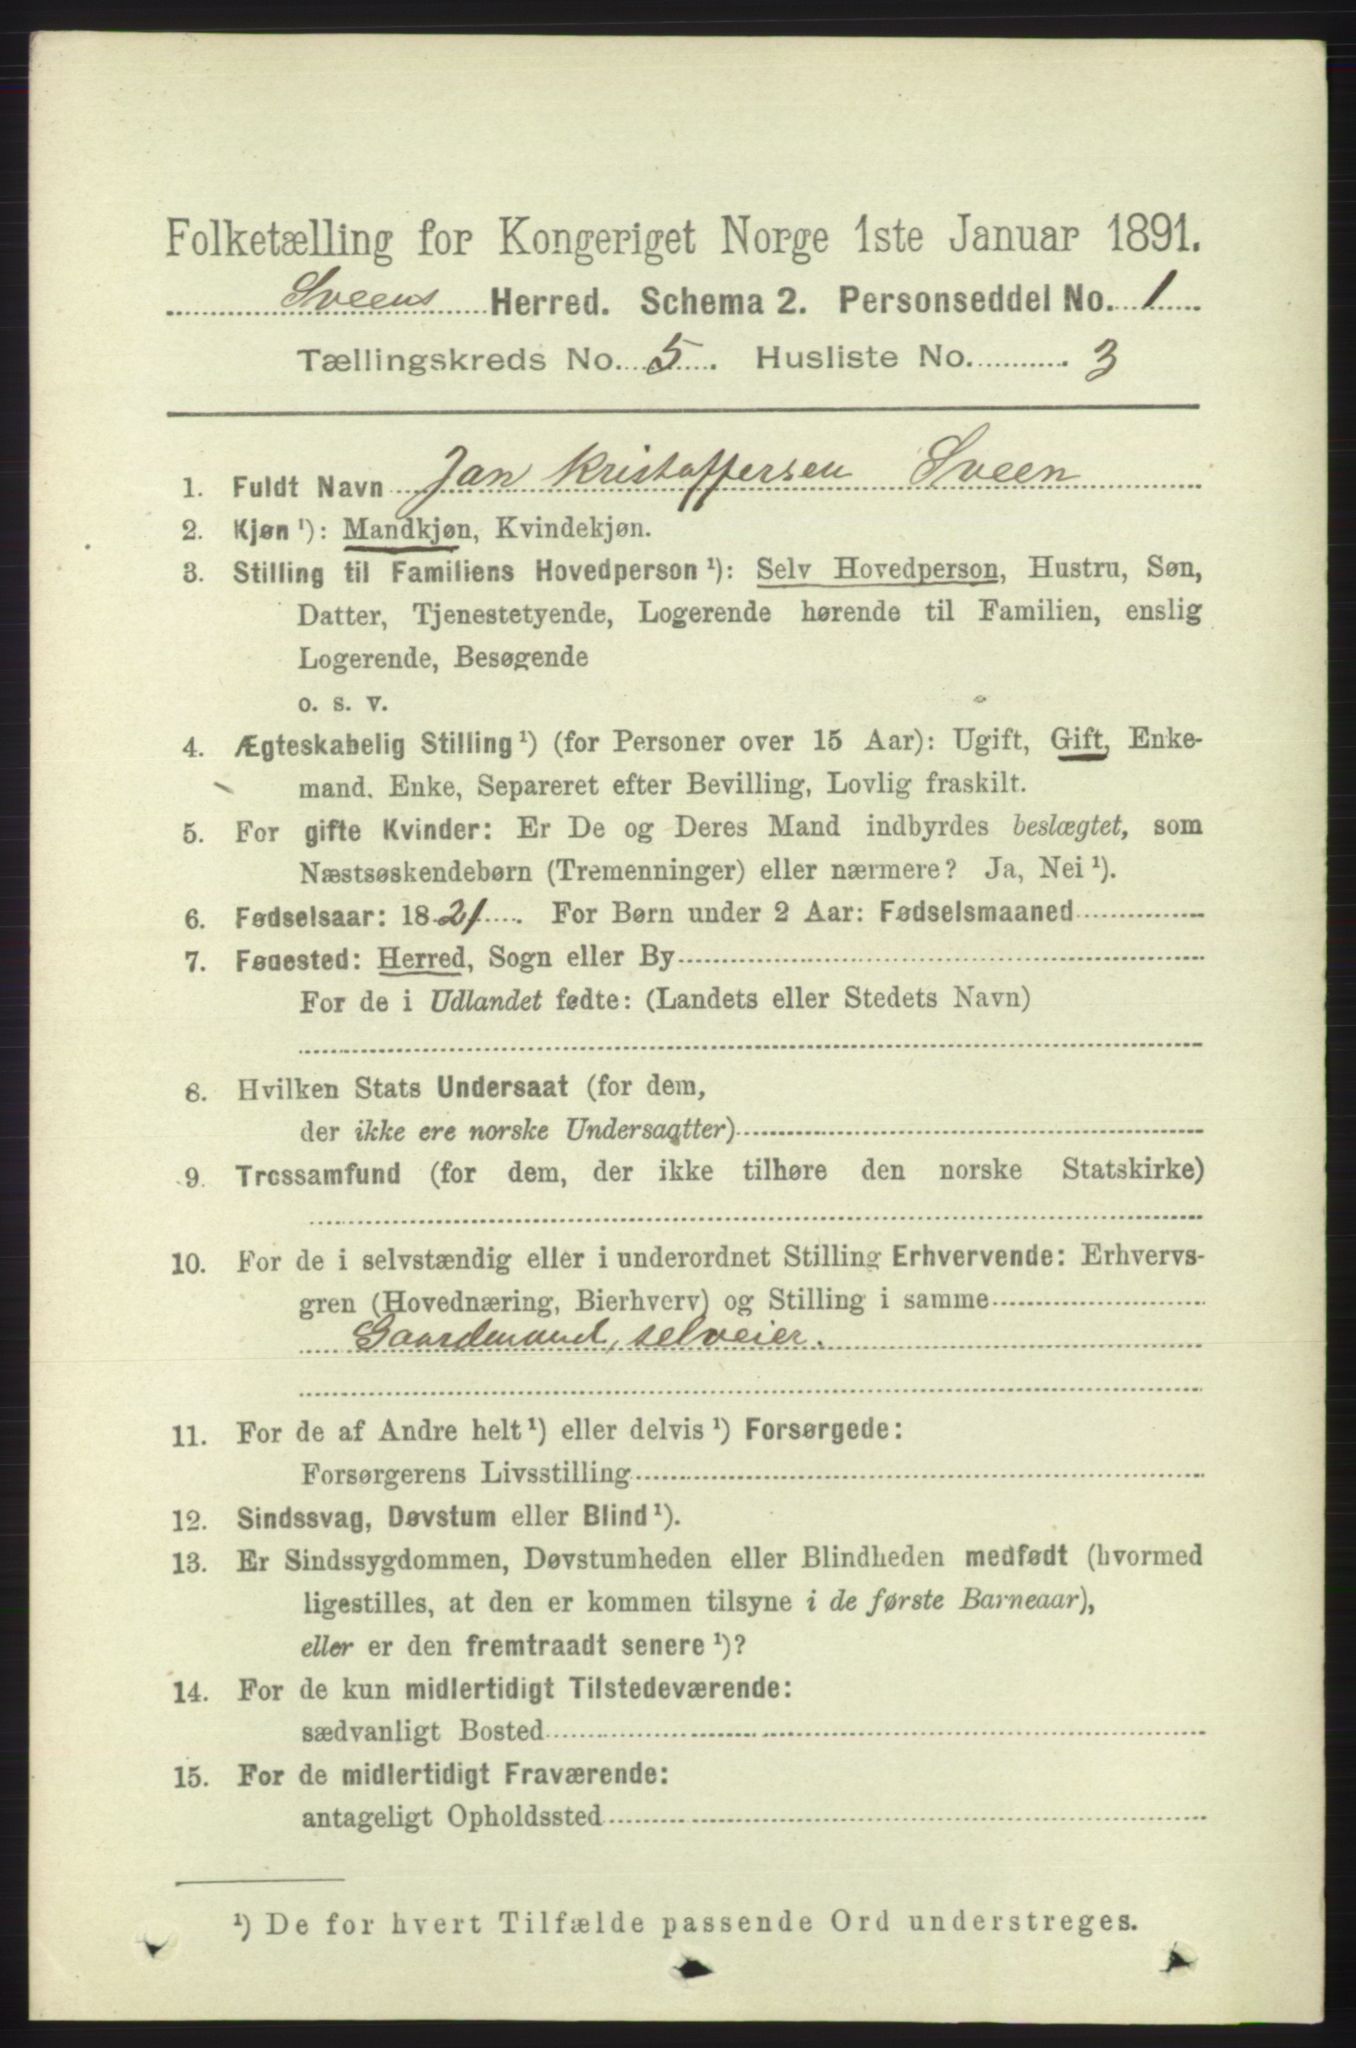 Folketælling for Kongeriget Norge 1ste Januar 1891.
Sveens Herred. Schema 2. Personseddel No. 1
Tællingskreds No. 5. Husliste No. 3
1. Fuldt Navn Jan Kristoffersen Sveen
2. Kjøn ¹): Mandkjøn, Kvindekjøn.
3. Stilling til Familiens Hovedperson ¹): Selv Hovedperson, Hustru, Søn,
Datter, Tjenestetyende, Logerende hørende til Familien, enslig
Logerende, Besøgende
o. s. v.
4. Ægteskabelig Stilling ¹) (for Personer over 15 Aar): Ugift, Gift, Enke-
mand. Enke, Separeret efter Bevilling, Lovlig fraskilt.
5. For gifte Kvinder: Er De og Deres Mand indbyrdes beslægtet, som
Næstsøskendebørn (Tremenninger) eller nærmere? Ja, Nei ¹).
6. Fødselsaar: 1821. For Børn under 2 Aar: Fødselsmaaned
7. Føuested: Herred, Sogn eller By
For de i Udlandet fødte: (Landets eller Stedets Navn)
8. Hvilken Stats Undersaat (for dem,
der ikke ere norske Undersaatter)
9. Trossamfund (for dem, der ikke tilhøre den norske Statskirke)
10. For de i selvstændig eller i underordnet Stilling Erhvervende: Erhvervs-
gren (Hovednæring, Bierhverv) og Stilling i samme
Gaardmand, selveier.
11. For de af Andre helt ¹) eller delvis ¹) Forsørgede:
Forsørgerens Livsstilling
12. Sindssvag, Døvstum eller Blind ¹).
13. Er Sindssygdommen, Døvstumheden eller Blindheden medfødt (hvormed
ligestilles, at den er kommen tilsyne i de første Barneaar),
eller er den fremtraadt senere ¹)?
14. For de kun midlertidigt Tilstedeværende:
sædvanligt Bosted
15. For de midlertidigt Fraværende:
antageligt Opholdssted
¹) De for hvert Tilfælde passende Ord understreges.